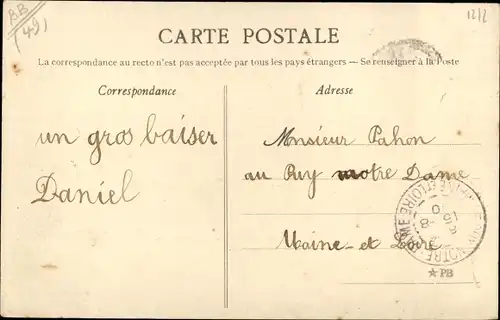 BB
(49)
1212
CARTE POSTALE
La correspondance au recto n'est pas acceptée par tous les pays étrangers — Se renseigner à la Poste
Correspondance
Adresse
un gros baiser
Daniel
Monsieur Pahon
au Puy notre Dame
Maine-et Loire
★PB